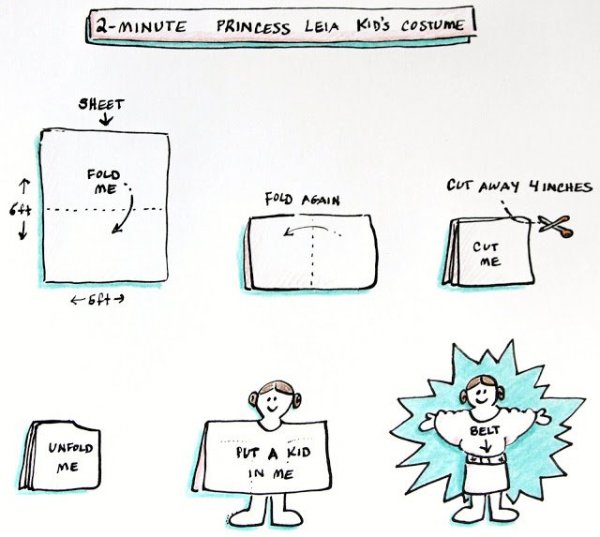 2-MINUTE PRINCESS LEIA KID'S COSTUME
SHEET
FOLD
ME
6ft
5ft
FOLD AGAIN
CUT AWAY 4 INCHES
CUT
ME
UNFOLD
ME
PUT A KID
IN ME
BELT